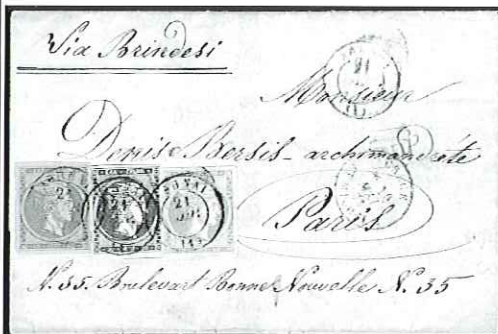 Via Brindesi
Monsieur
Denis Bersis - archimandrite
Paris
N. 35. Boulevart Bonne Nouvelle N. 35
21
21
21
149